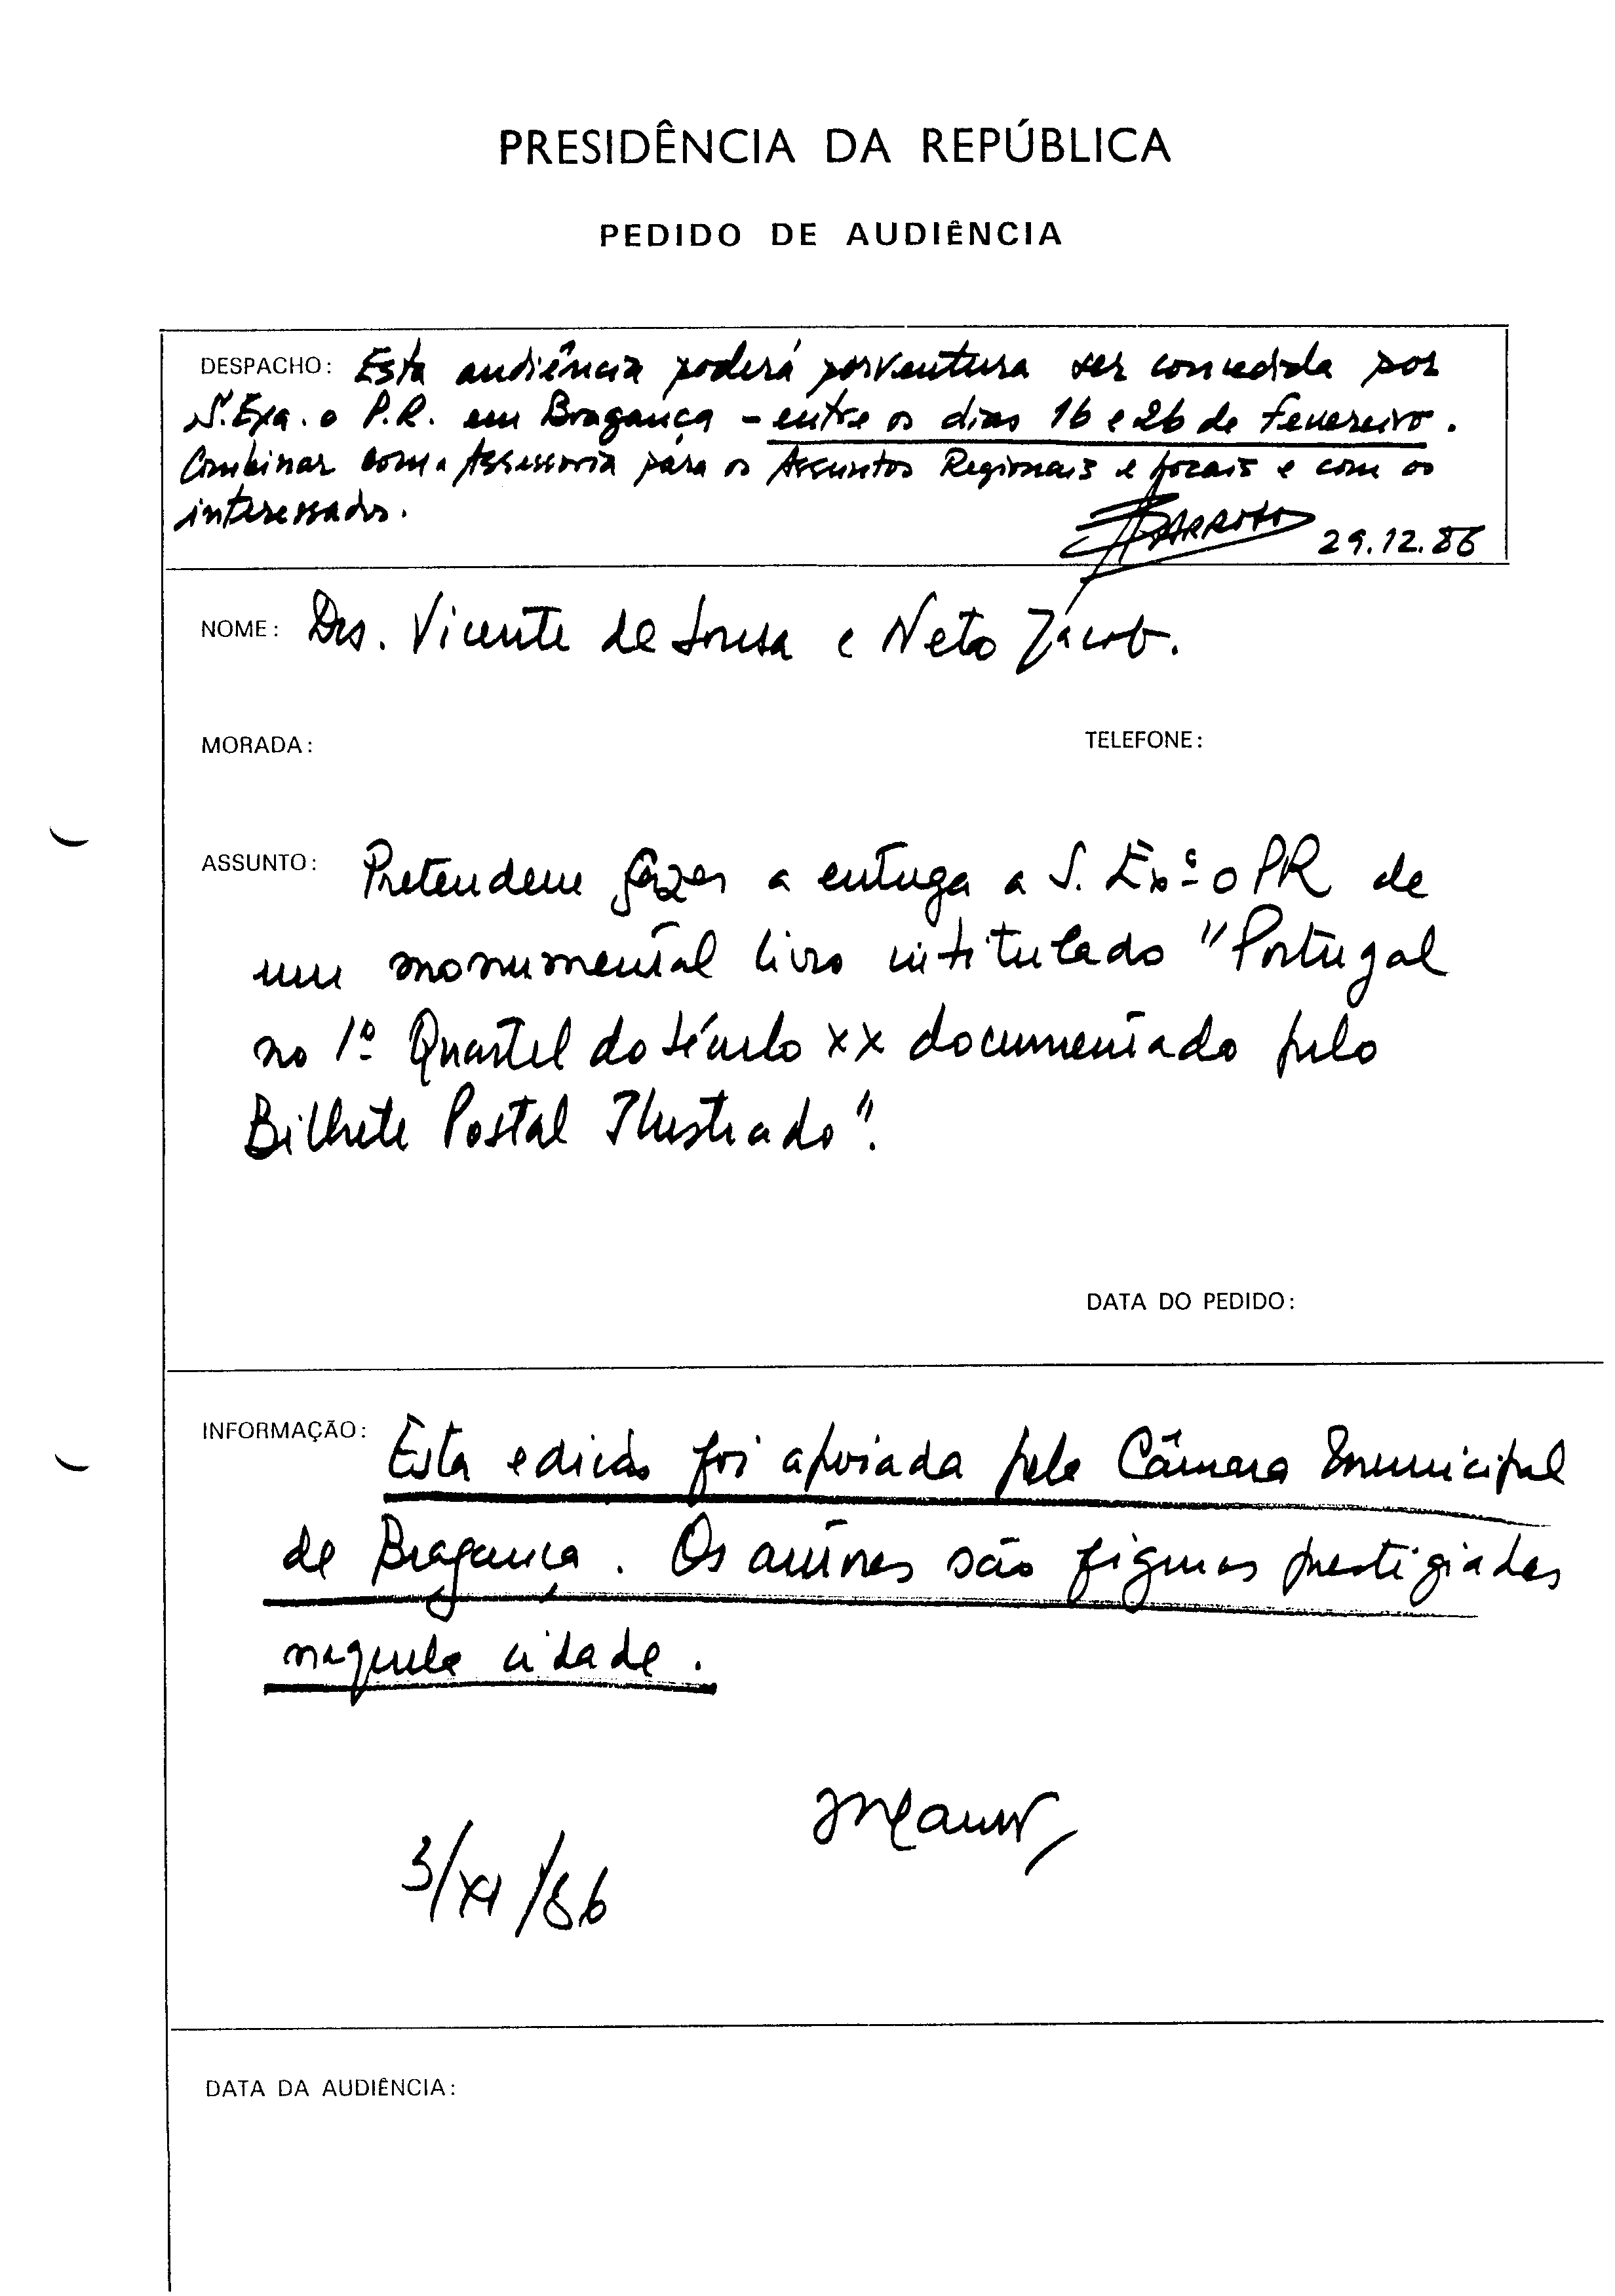 PRESIDÊNCIA DA REPÚBLICA
PEDIDO DE AUDIÊNCIA
DESPACHO: Esta audiência poderá porventura ser concedida por
S. Exa. o P.R. em Bragança - entre os dias 16 e 26 de Fevereiro.
Combinar com a Assessoria para os Assuntos Regionais e Locais e com os
interessados.
BARROSO 29.12.86
NOME: Drs. Vicente de Sousa e Neto Jacob.
MORADA: TELEFONE:
ASSUNTO: Pretendem fazer a entrega a S. Exª o PR de
um monumental livro intitulado "Portugal
no 1º Quartel do Século XX documentado pelo
Bilhete Postal Ilustrado".
DATA DO PEDIDO:
INFORMAÇÃO: Esta edição foi apoiada pela Câmara Municipal
de Bragança. Os autores são figuras prestigiadas
naquela cidade.
3/XI/86
DATA DA AUDIÊNCIA: